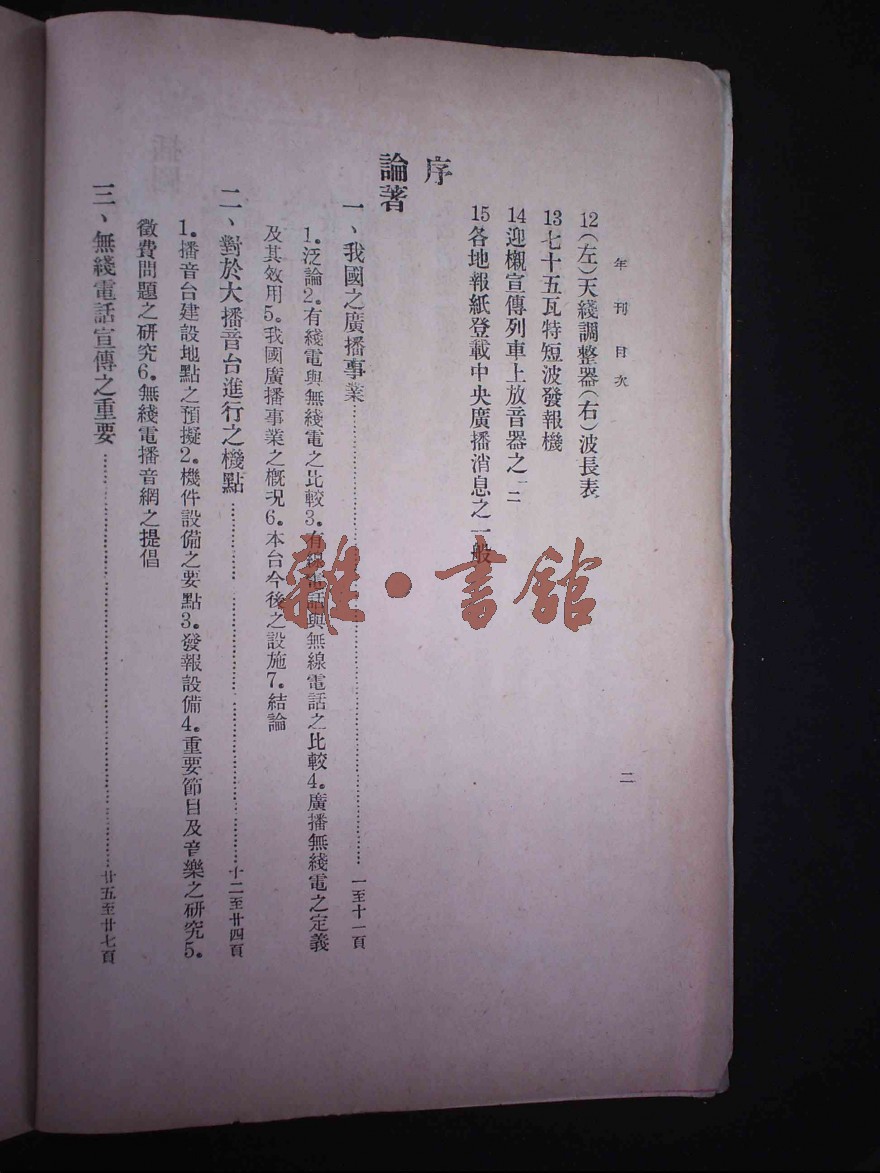 年刊目次
二
12(左)天綫調整器(右)波長表
13七十五瓦特短波發報機
14迎櫬宣傳列車上放音器之一二
15各地報紙登載中央廣播消息之一般
序
論著
一、我國之廣播事業……一至十一頁
1。泛論2。有綫電與無綫電之比較3。有綫電話與無線電話之比較4。廣播無綫電之定義
及其效用5。我國廣播事業之槪况6。本台今後之設施7。結論
二、對於大播音台進行之機點……十二至廿四頁
1。播音台建設地點之預擬2。機件設備之要點3。發報設備4。重要節目及音樂之研究5。
徵費問題之研究6。無綫電播音網之提倡
三、無綫電話宣傳之重要……廿五至廿七頁
雜·書館